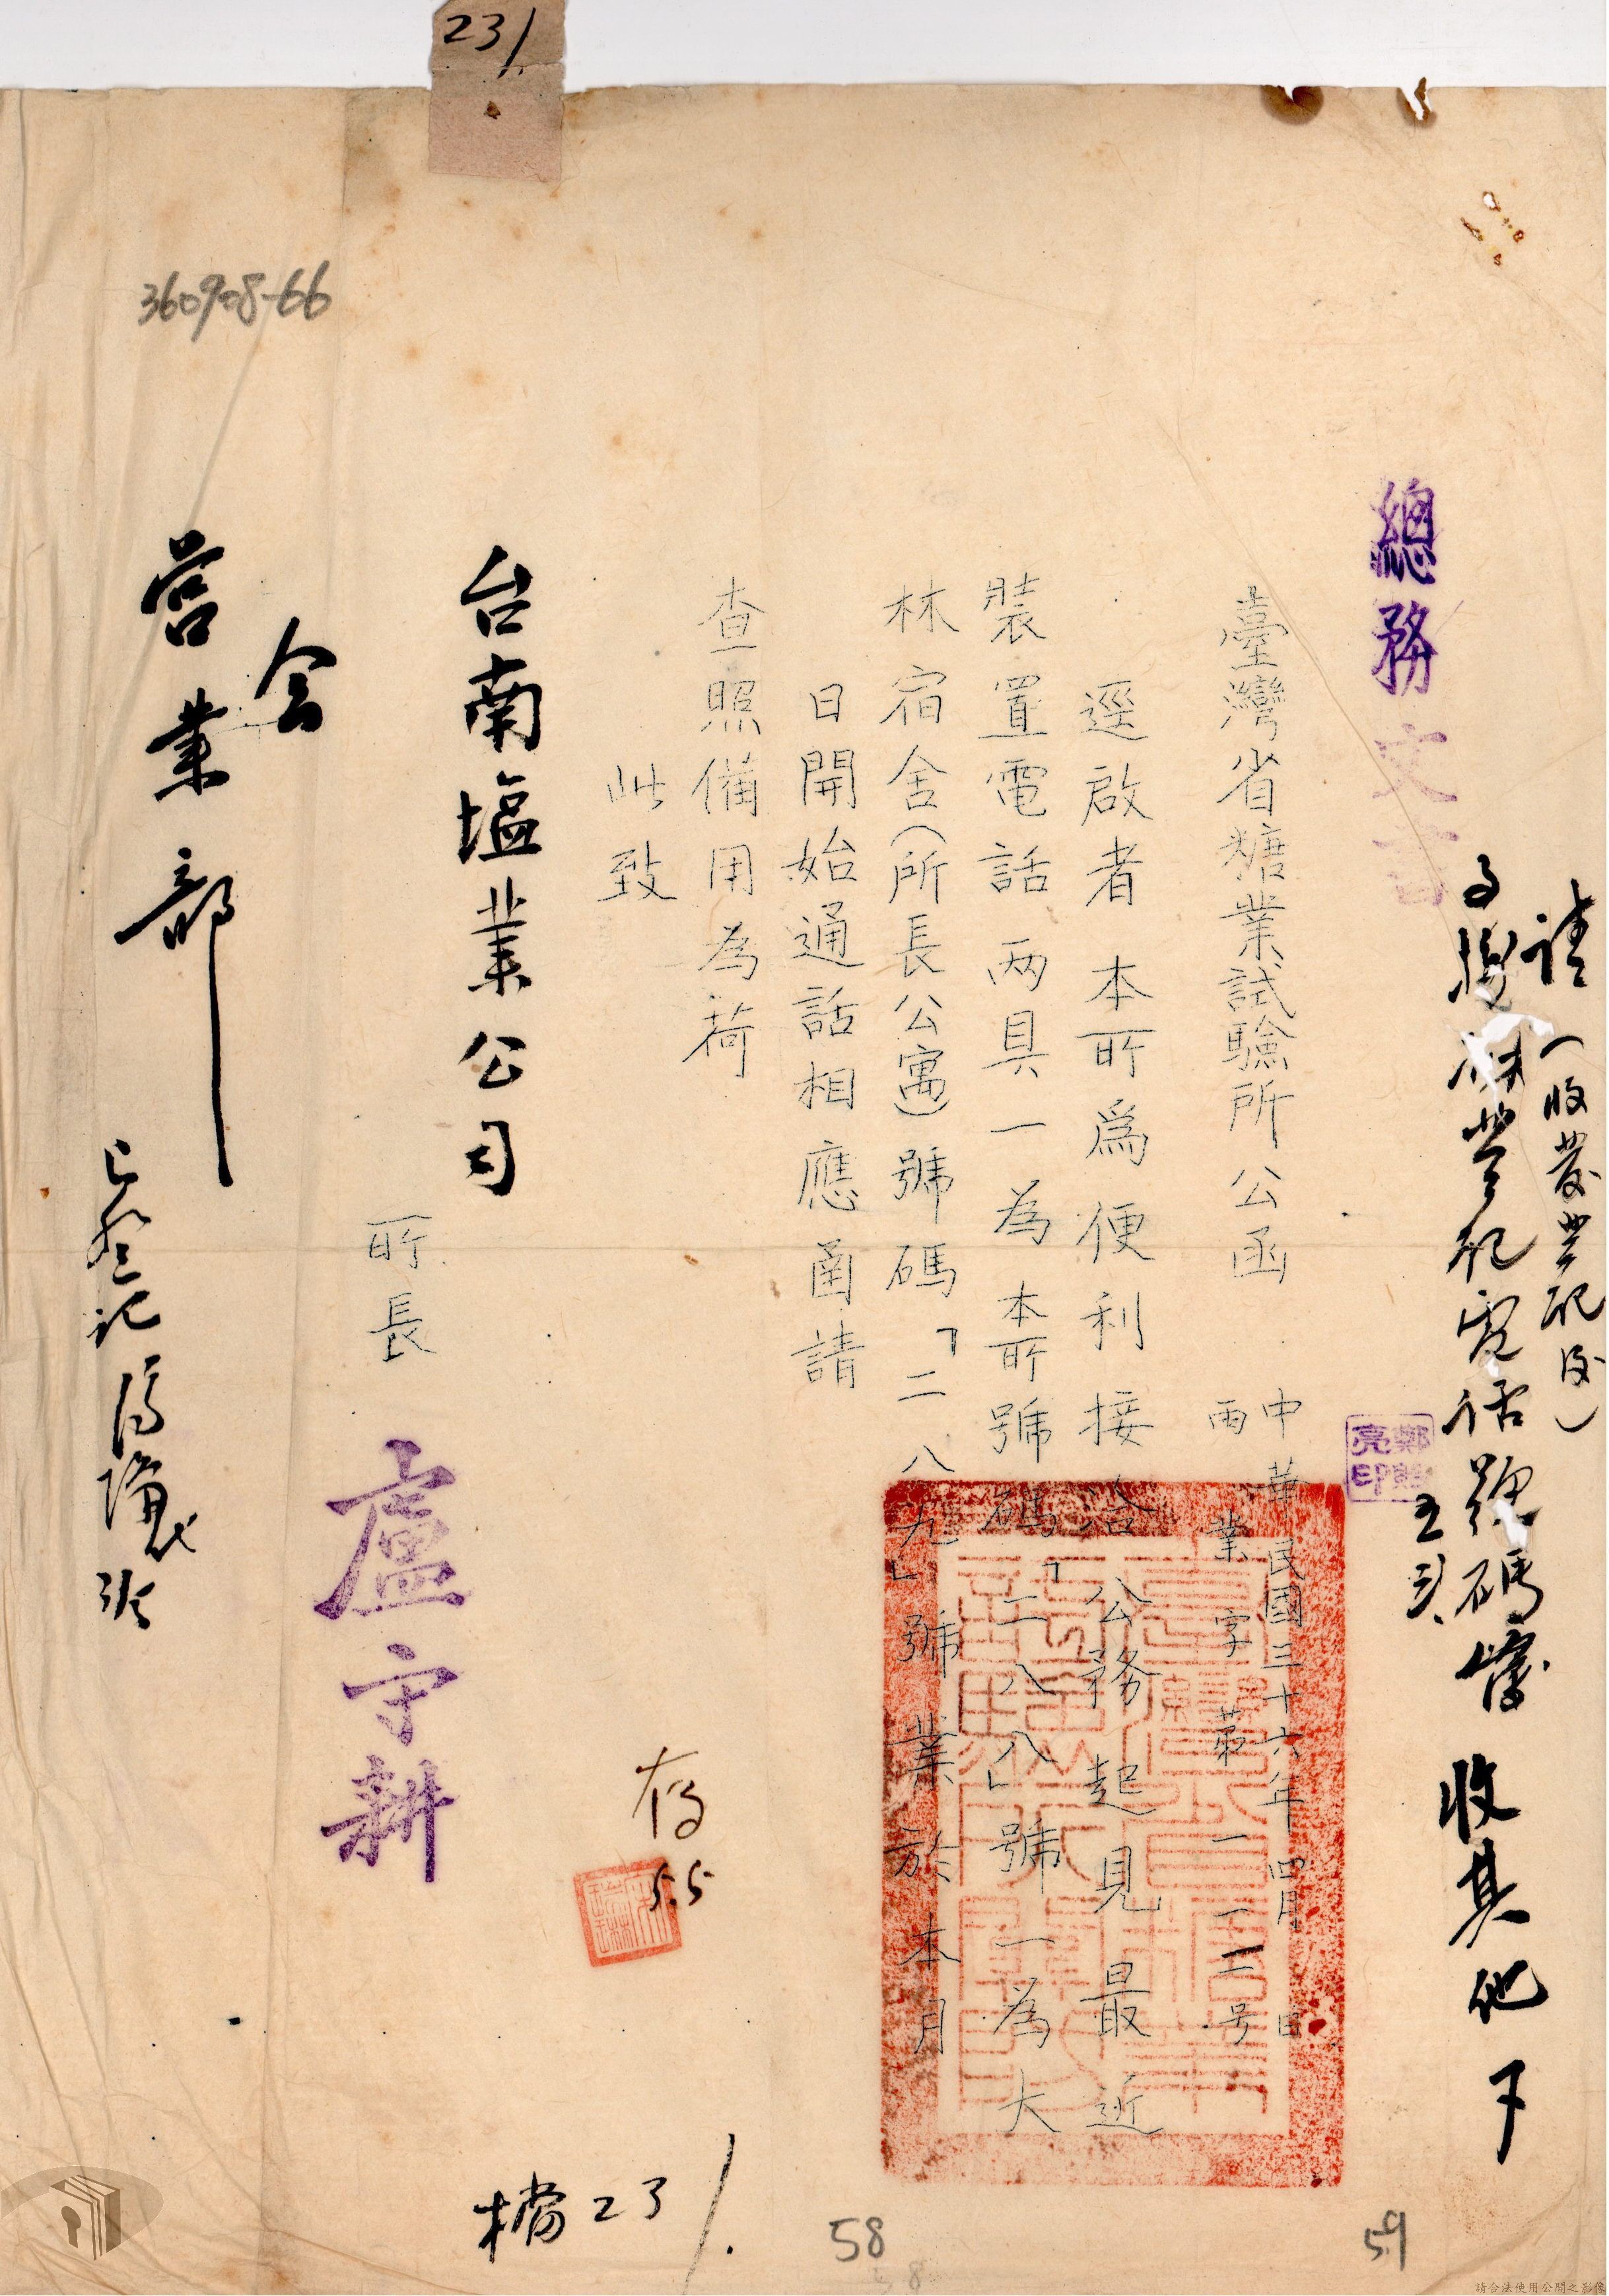 231
360908-66
請（收發登記後）
登記電話號碼簿 收其他下
五.
總務
文書
鄭
亮印
臺灣省糖業試驗所公函
中華民國三十六年四月 日
丙 業字第一一三号
逕啟者本所爲便利接洽公務起見最近
裝置電話兩具一為本所號碼「二八八」號一為大
林宿舍（所長公寓）號碼「二八九」號業於本月
日開始通話相應函請
查照備用為荷
此致
台南塩業公司
所長
盧守耕
存
5.5
会
营業部
已登记
檔231.
58
59
請合法使用公開之影像